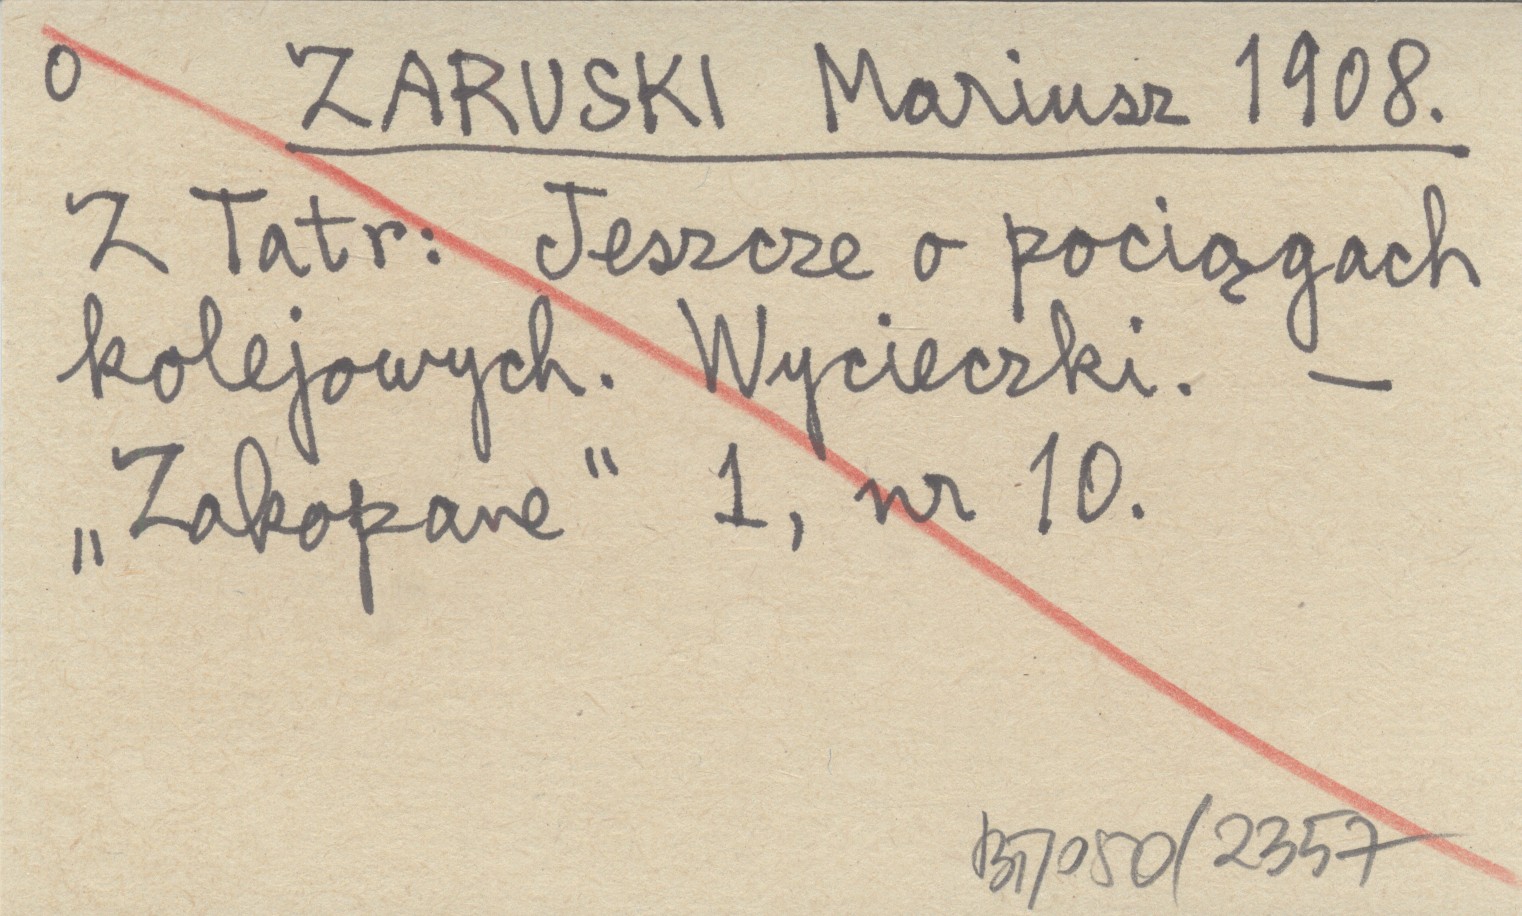 o ZARUSKI Mariusz 1908.
Z Tatr: Jeszcze o pociągach
kolejowych. Wycieczki. —
„Zakopane“ 1, nr 10.
BT/050/2357